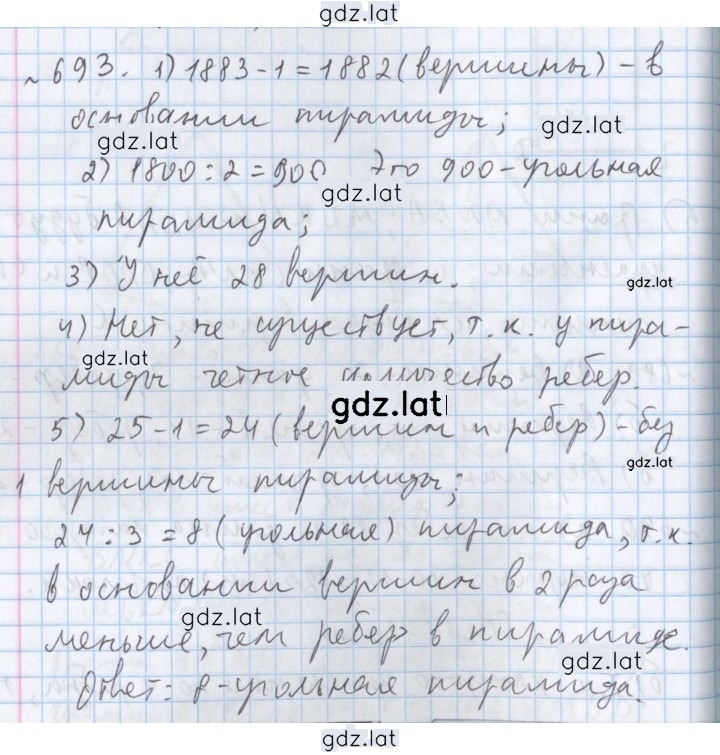 gdz.lat
№693. 1) 1883-1=1882 (вершины) - в
основании пирамиды;
gdz.lat
gdz.lat
2) 1800:2=900 Это 900-угольная
gdz.lat
пирамида;
3) У неё 28 вершин.
gdz.lat
4) Нет, не существует, т.к. у пира-
gdz.lat
миды четное количество ребер.
gdz.lat
5) 25-1=24 (вершин и ребер) - без
gdz.lat
1 вершины пирамиды;
24:3=8 (угольная) пирамида, т.к.
в основании вершин в 2 раза
gdz.lat
меньше, чем ребер в пирамиде.
gdz.lat
Ответ: 8-угольная пирамида.
gdz.lat